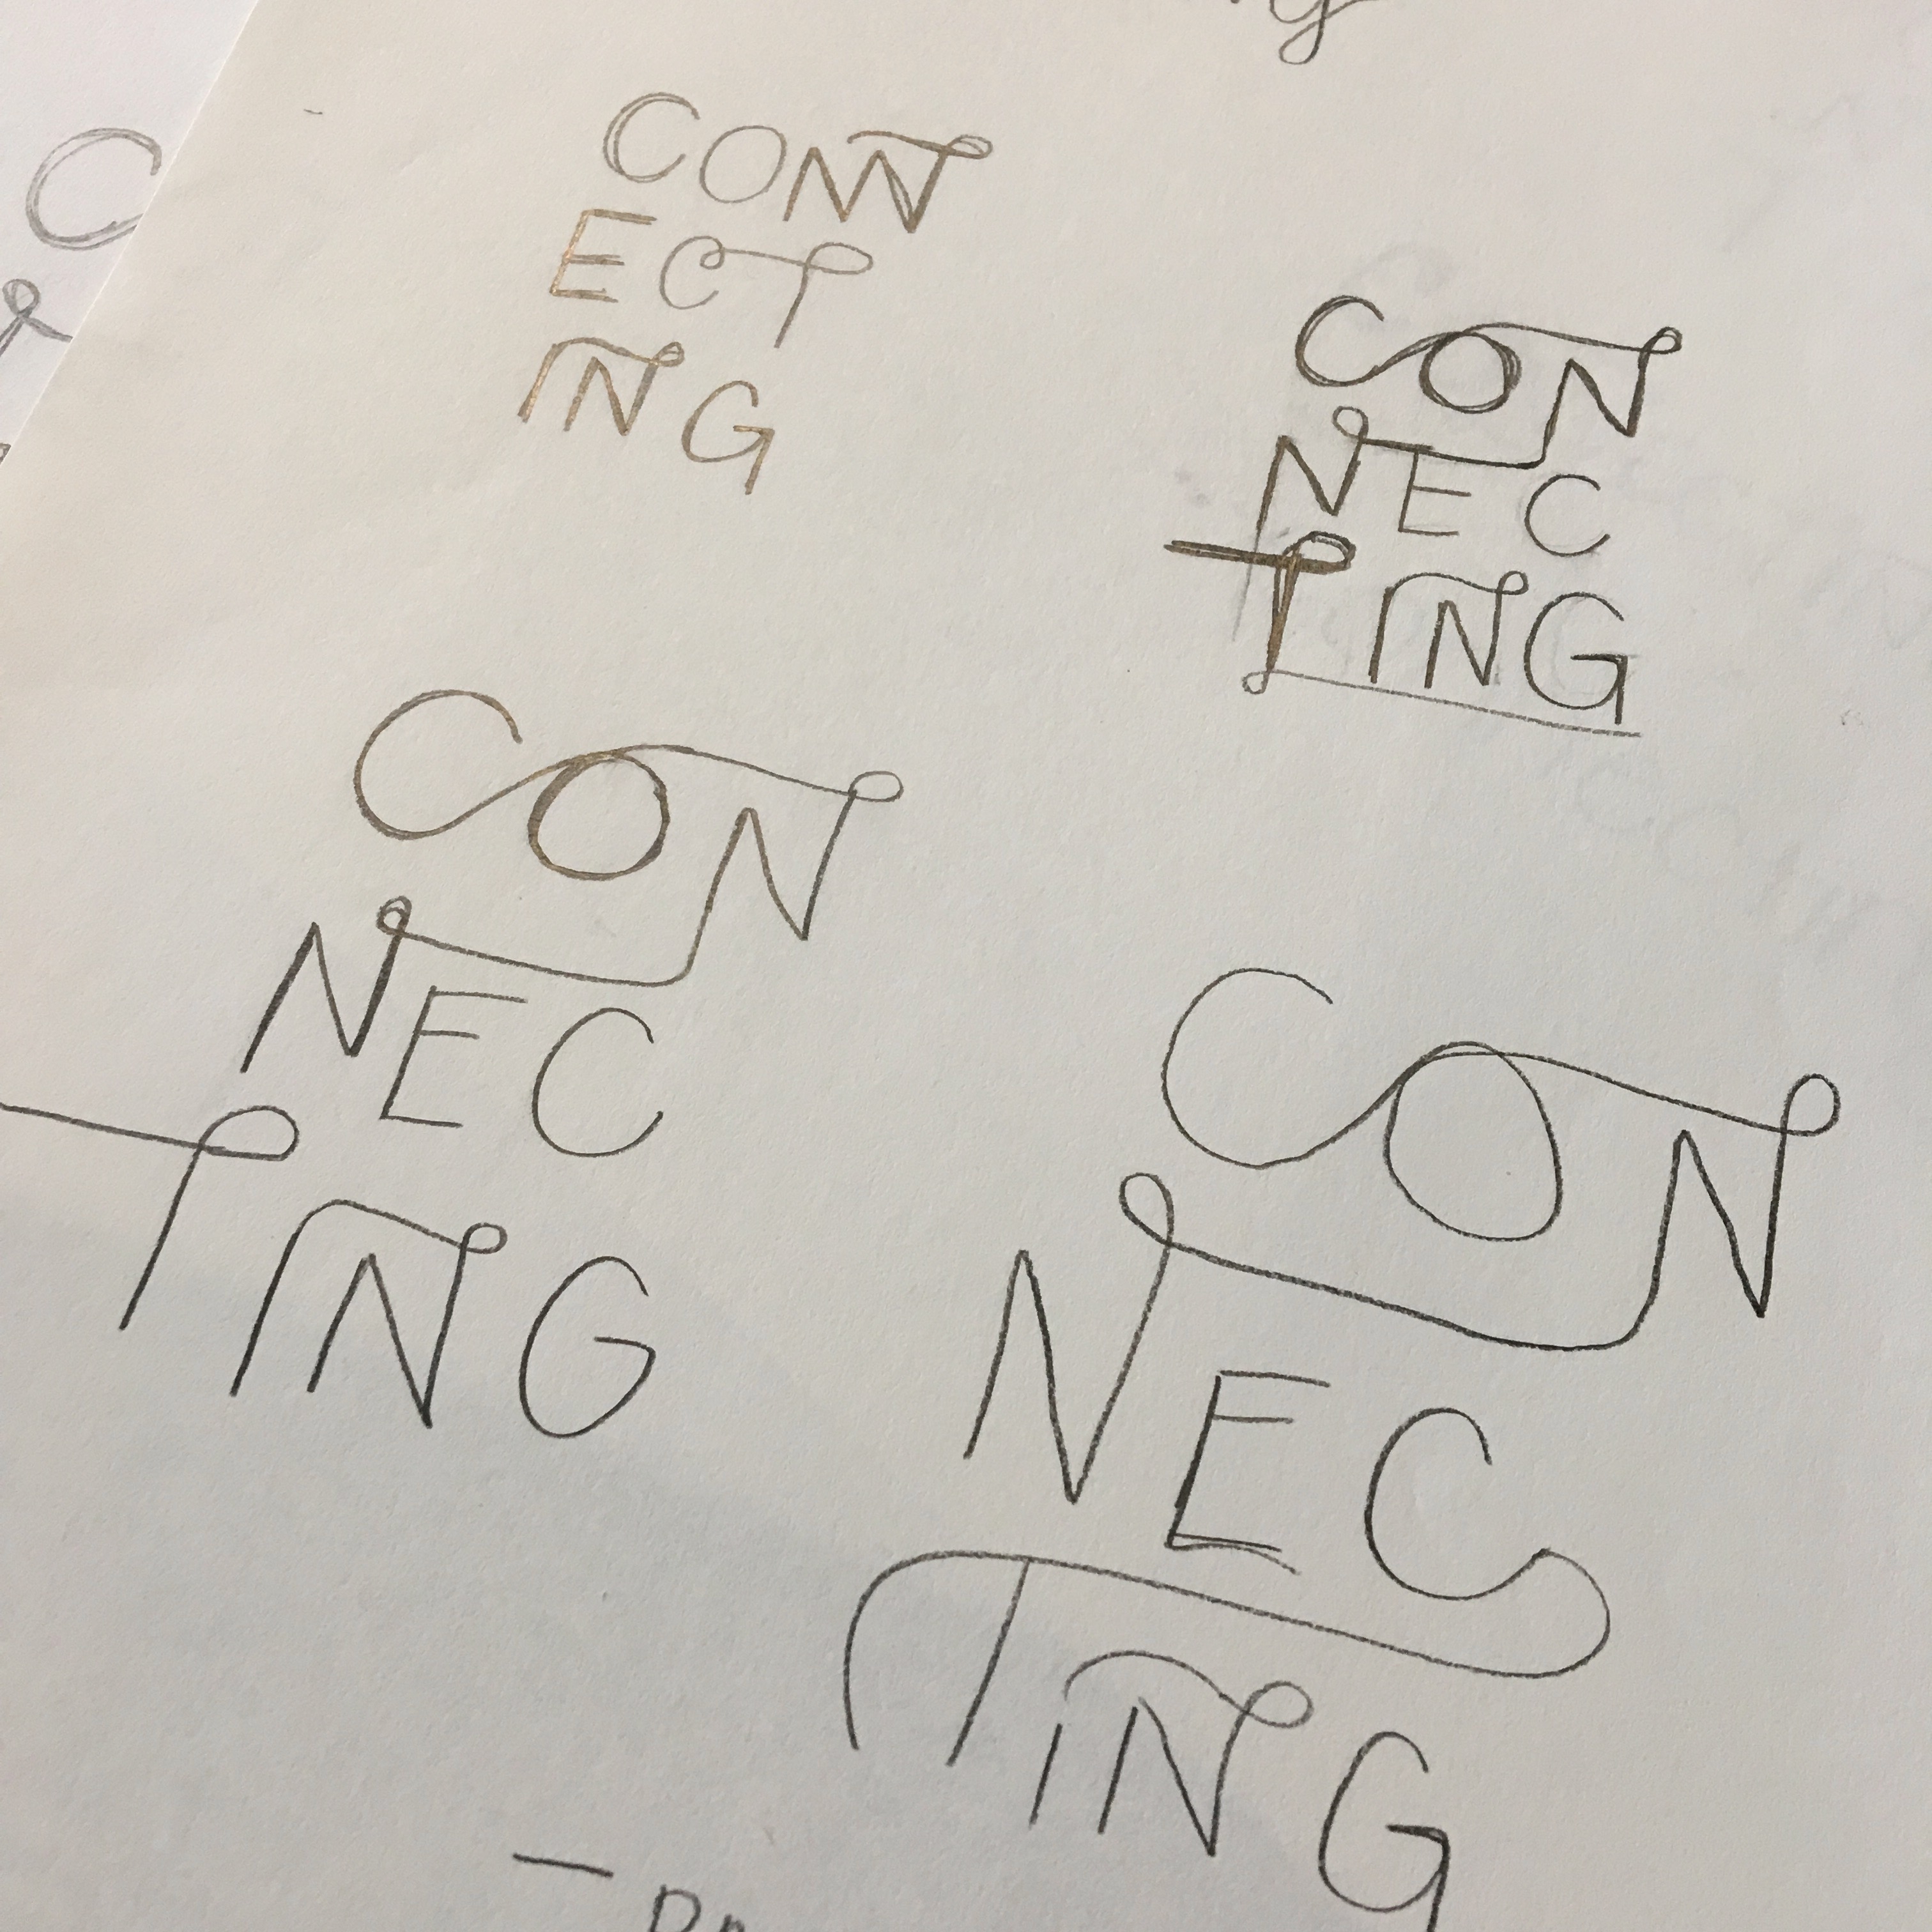 CONN
ECT
ING
CON
NEC
TING
CON
NEC
TING
CON
NEC
TING